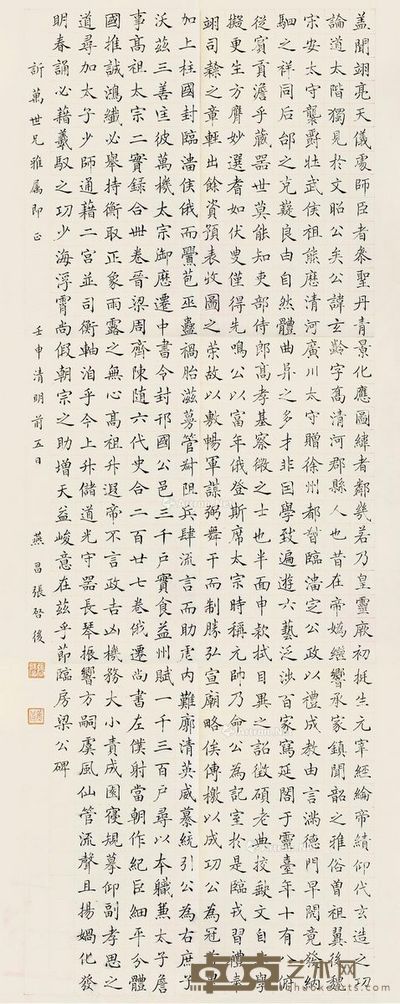 盖聞翊亮天儀處師臣者參聖丹青景化應圖緯者鄰幾若乃皇靈厥初挺生元宰經綸帝績仰代玄造之功
論道太階獨見於文昭公矣公諱玄齡字喬清河郡縣人也昔在帝媯繼響承家鎮聞韶之雅俗曾祖翼後魏
宗安太守襲爵壯武侯祖熊應清河廣川太守贈徐州都督臨淄定公政以禮成教由言滿德門早閞竟發納
駟之祥同后邰之克嶷良由自然體曲昇之多才非因學致遍遊六藝泛涉百家寫延閣于靈臺年十有八府
從賓貢澹乎藏器世莫能知吏部侍郎高孝基察微之士也半面申款拭目異之詔徵碩老典校藝文自學
擬更生方膺妙選者如伏叟僅得先鳴公以富年俄登斯席太宗時稱元帥乃命公為記室於是臨戎習禮奉
翊司隸之章輕出餘資預表收圖之榮故以敷暢軍謀弼舞干而制勝弘宣廟略俟傳檄以成功公為冠首焉
加上柱國封臨淄侯俄而釁苞巫蠱禍胎滋蔓管叔阻兵肆流言而助虐內難廓清英威纂統引公為右庶子
沃茲三善匡彼萬機太宗御應遷中書令封邗國公邑三千戶實食益州賦一千三百戶尋以本職兼太子詹
事高祖太宗二實録合卌卷晉梁周齊陳隨六代史合二百廿七卷俄遷尚書左僕射當朝作紀巨細平分體
國推誠鴻纖必舉持衡取正象雨露之無心高祖升遐帝不言政吉凶機務大小責成園寢規摹仰副孝思之
道尋加太子少師通藉二宮並司衡軸洎乎今上升儲道光守器長琴振響方嗣虞風仙管流聲且揚媧化發
明春誦必藉羲馭之功少海浮霄尚假朝宗之助增天益峻意在茲乎節臨房梁公碑
訢萬世兄雅屬即正
壬申清明前五日 燕昌張啓後
卓克艺术网